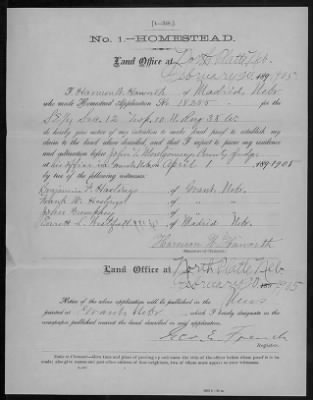 [4-348.]
No. 1.—HOMESTEAD.
Land Office at North Platte, Neb.
February 20, 1905.
I, Harmon W. Haworth, of Madrid Nebr
who made Homestead Application No. 18265 for the
SE/4 Sec. 12 Twp. 10 N. Rg. 38 W.
do hereby give notice of my intention to make final proof to establish my
claim to the land above described, and that I expect to prove my residence
and cultivation before John T. Montgomery, County Judge
at his office in Grant, Nebr. on April 1, 1905
by two of the following witnesses:
Benjamin F. Hastings of Grant, Nebr.
Frank W. Hastings of " "
John of " "
Everett L. of Madrid Nebr.
Harmon W. Haworth
(Signature of Claimant.)
Land Office at North Platte, Neb
February 20, 1905
Notice of the above application will be published in the News
printed at Grant, Nebr., which I hereby designate as the
newspaper published nearest the land described in said application.
Geo. E. French
Register.